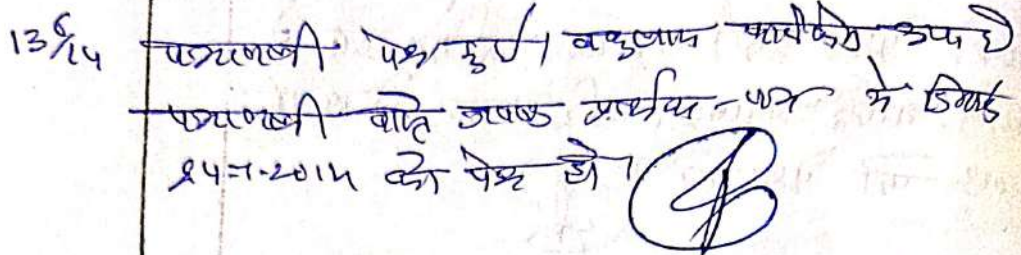 13/6/14 पत्रावली पेश हुई। वकुलाय कार्य से है
पत्रावली वास्ते जवाब प्रार्थना-पत्र में दिनांक
24-7-2014 को पेश हो।